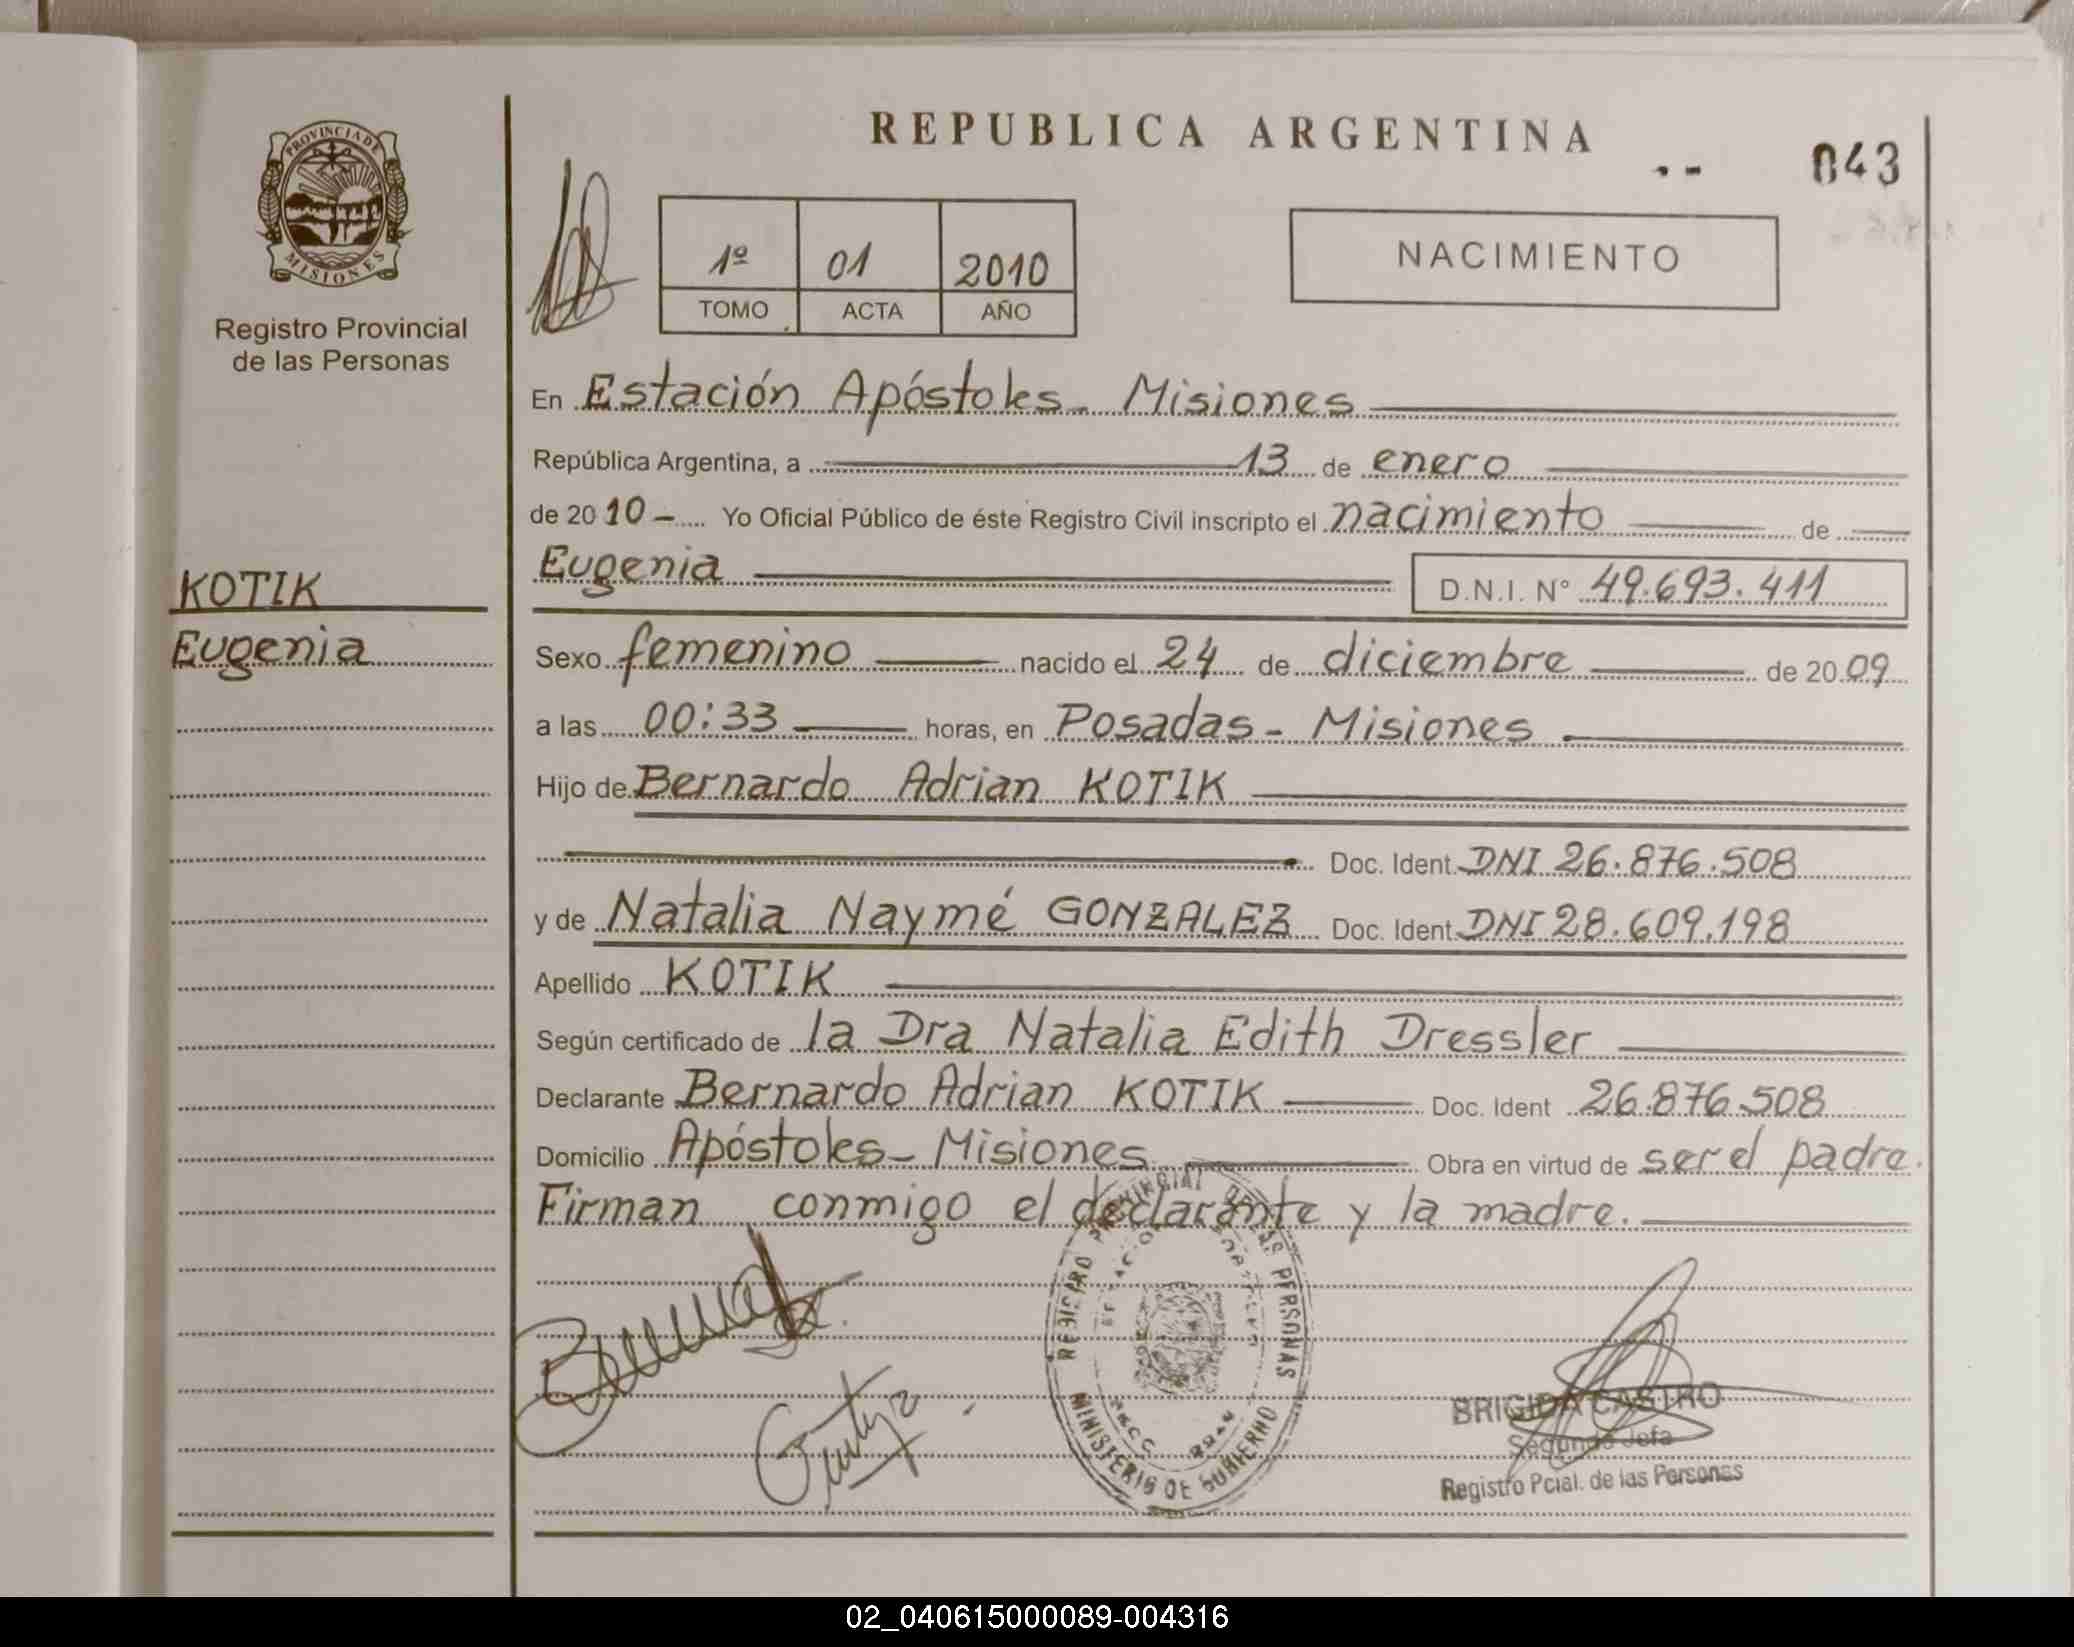 REPUBLICA ARGENTINA
043
PROVINCIA DE MISIONES
Registro Provincial
de las Personas
1º 01 2010
TOMO ACTA AÑO
NACIMIENTO
En Estación Apóstoles - Misiones
República Argentina, a 13 de enero
de 2010 - Yo Oficial Público de éste Registro Civil inscripto el nacimiento de
Eugenia D.N.I. N° 49.693.411
KOTIK
Eugenia
Sexo femenino nacido el 24 de diciembre de 2009
a las 00:33 horas, en Posadas - Misiones
Hijo de Bernardo Adrian KOTIK
Doc. Ident. DNI 26.876.508
y de Natalia Naymé GONZALEZ Doc. Ident. DNI 28.609.198
Apellido KOTIK
Según certificado de la Dra Natalia Edith Dressler
Declarante Bernardo Adrian KOTIK Doc. Ident 26.876.508
Domicilio Apóstoles - Misiones Obra en virtud de ser el padre.
Firman conmigo el declarante y la madre.
REGISTRO PROVINCIAL DE LAS PERSONAS
MINISTERIO DE GOBIERNO
BRIGIDA CASTRO
Segunda Jefa
Registro Pcial. de las Personas
02_040615000089-004316